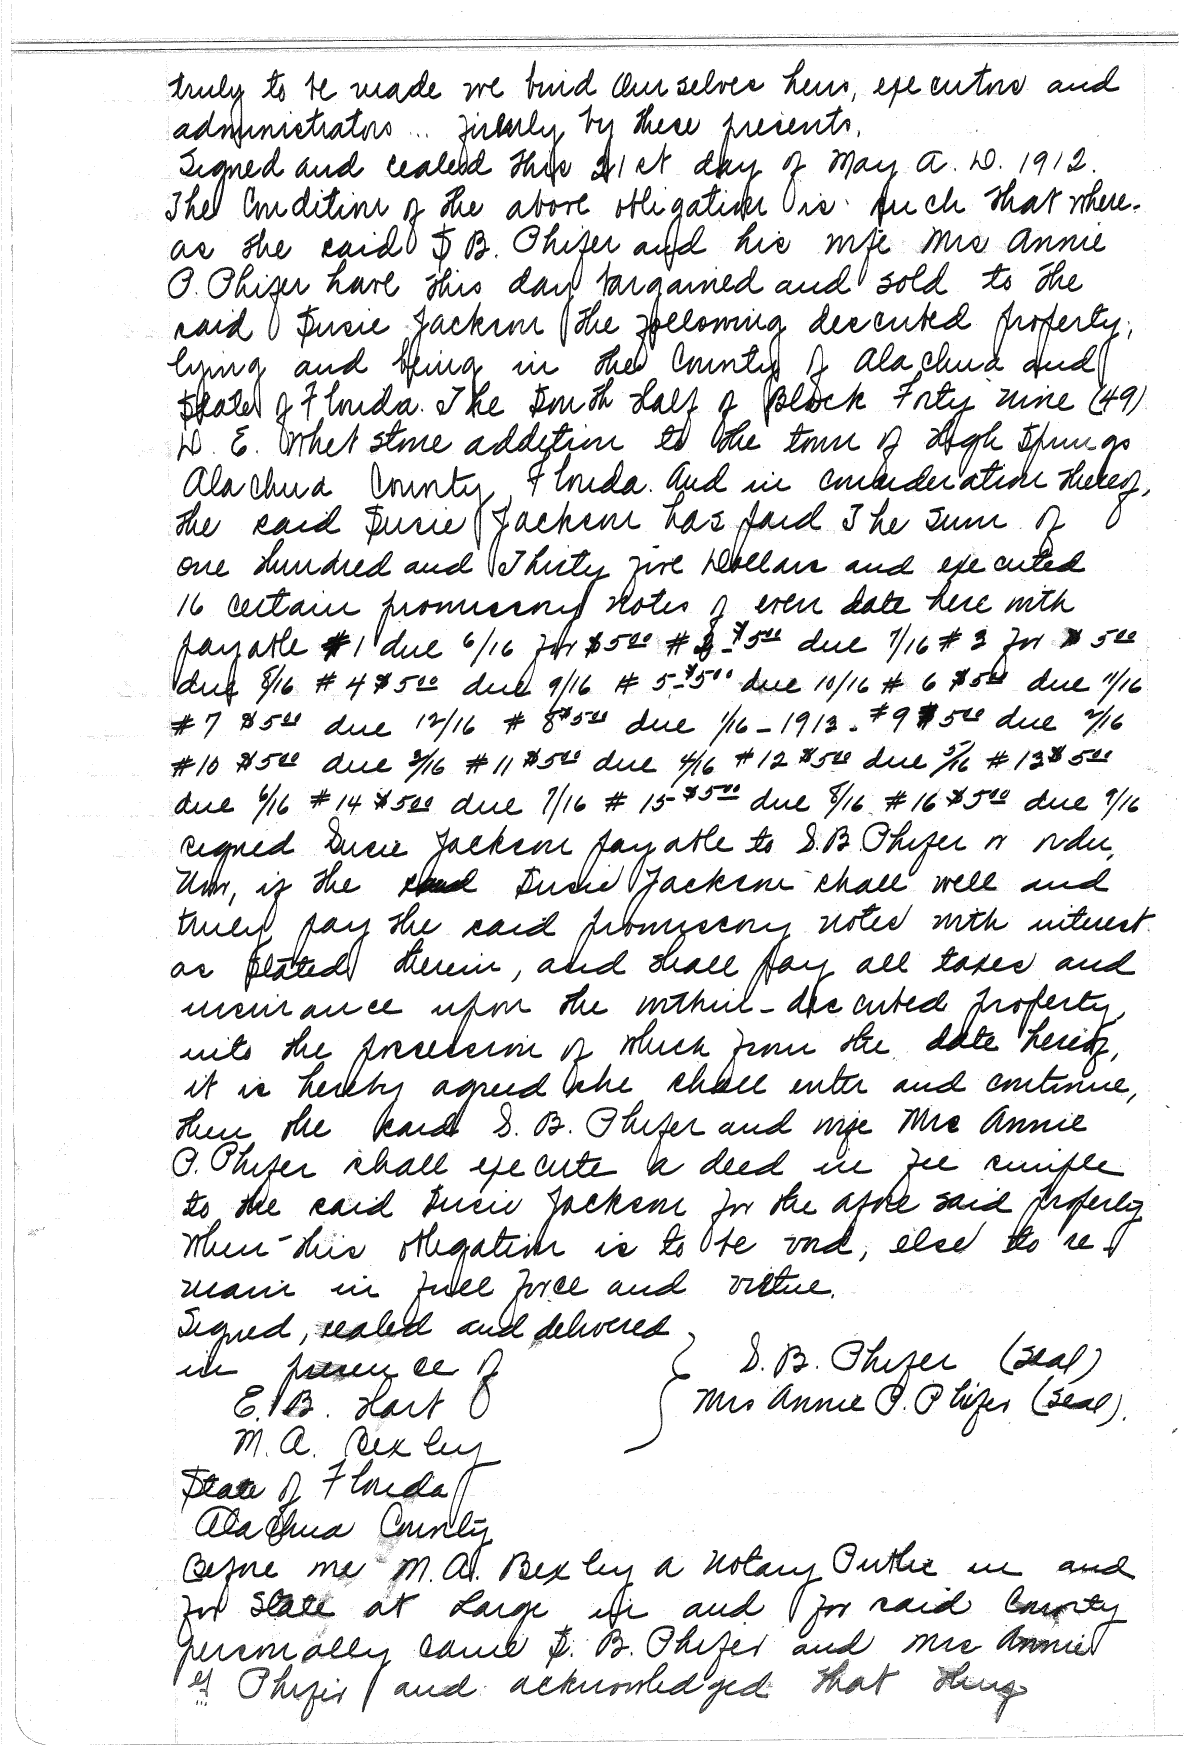 truly to be made we bind Ourselves heirs, executors and
administrators .. firmly by these presents.
Signed and sealed this 21st day of May A. D. 1912.
The Condition of the above obligation is such that where-
as the said S B. Phifer and his wife Mrs Annie
P. Phifer have this day bargained and sold to the
said Susie Jackson the following described property,
lying and being in the County of Alachua and
State of Florida. The South Half of Block Forty nine (49)
D. E. Whetstone addition to the town of High Springs
Alachua County, Florida. And in consideration thereof,
the said Susie Jackson has paid The Sum of
one Hundred and Thirty five Dollars and executed
16 certain promissory notes of even date here with
payable #1 due 6/16 for $5.00 #2 - $5.00 due 7/16 # 3 for $5.00
due 8/16 # 4 $5.00 due 9/16 # 5 - $5.00 due 10/16 # 6 $5.00 due 11/16
# 7 $5.00 due 12/16 # 8 $5.00 due 1/16 - 1913 - #9 $5.00 due 2/16
#10 $5.00 due 3/16 #11 $5.00 due 4/16 #12 $5.00 due 5/16 #13 $5.00
due 6/16 #14 $5.00 due 7/16 # 15 - $5.00 due 8/16 #16 $5.00 due 9/16
signed Susie Jackson payable to S.B. Phifer or order,
Now, if the said Susie Jackson shall well and
truly pay the said promissory notes with interest
as stated therein, and shall pay all taxes and
insurance upon the within-described property,
into the possession of which from the date hereof,
it is hereby agreed she shall enter and continue,
then the said S. B. Phifer and wife Mrs Annie
P. Phifer shall execute a deed in fee simple
to the said Susie Jackson for the afore said property
When this obligation is to be void, else to re-
main in full force and virtue.
Signed, sealed and delivered
in presence of
S. B. Phifer (Seal)
E. B. Hart
Mrs Annie P. Phifer (Seal).
M. A. Bexley
State of Florida
Alachua County
Before me M. A. Bexley a Notary Public in and
for State at Large in and for said County
personally came S. B. Phifer and Mrs Annie
Phifer and acknowledged that they